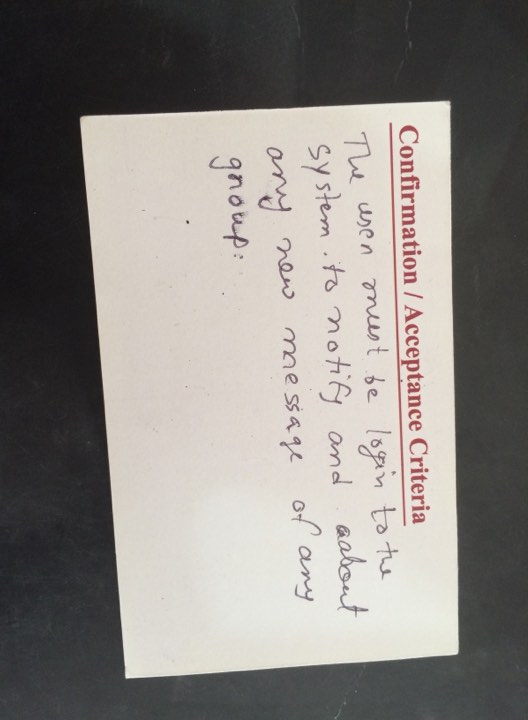 Confirmation / Acceptance Criteria
The user must be login to the
system. to notify and about
any new message of any
group.